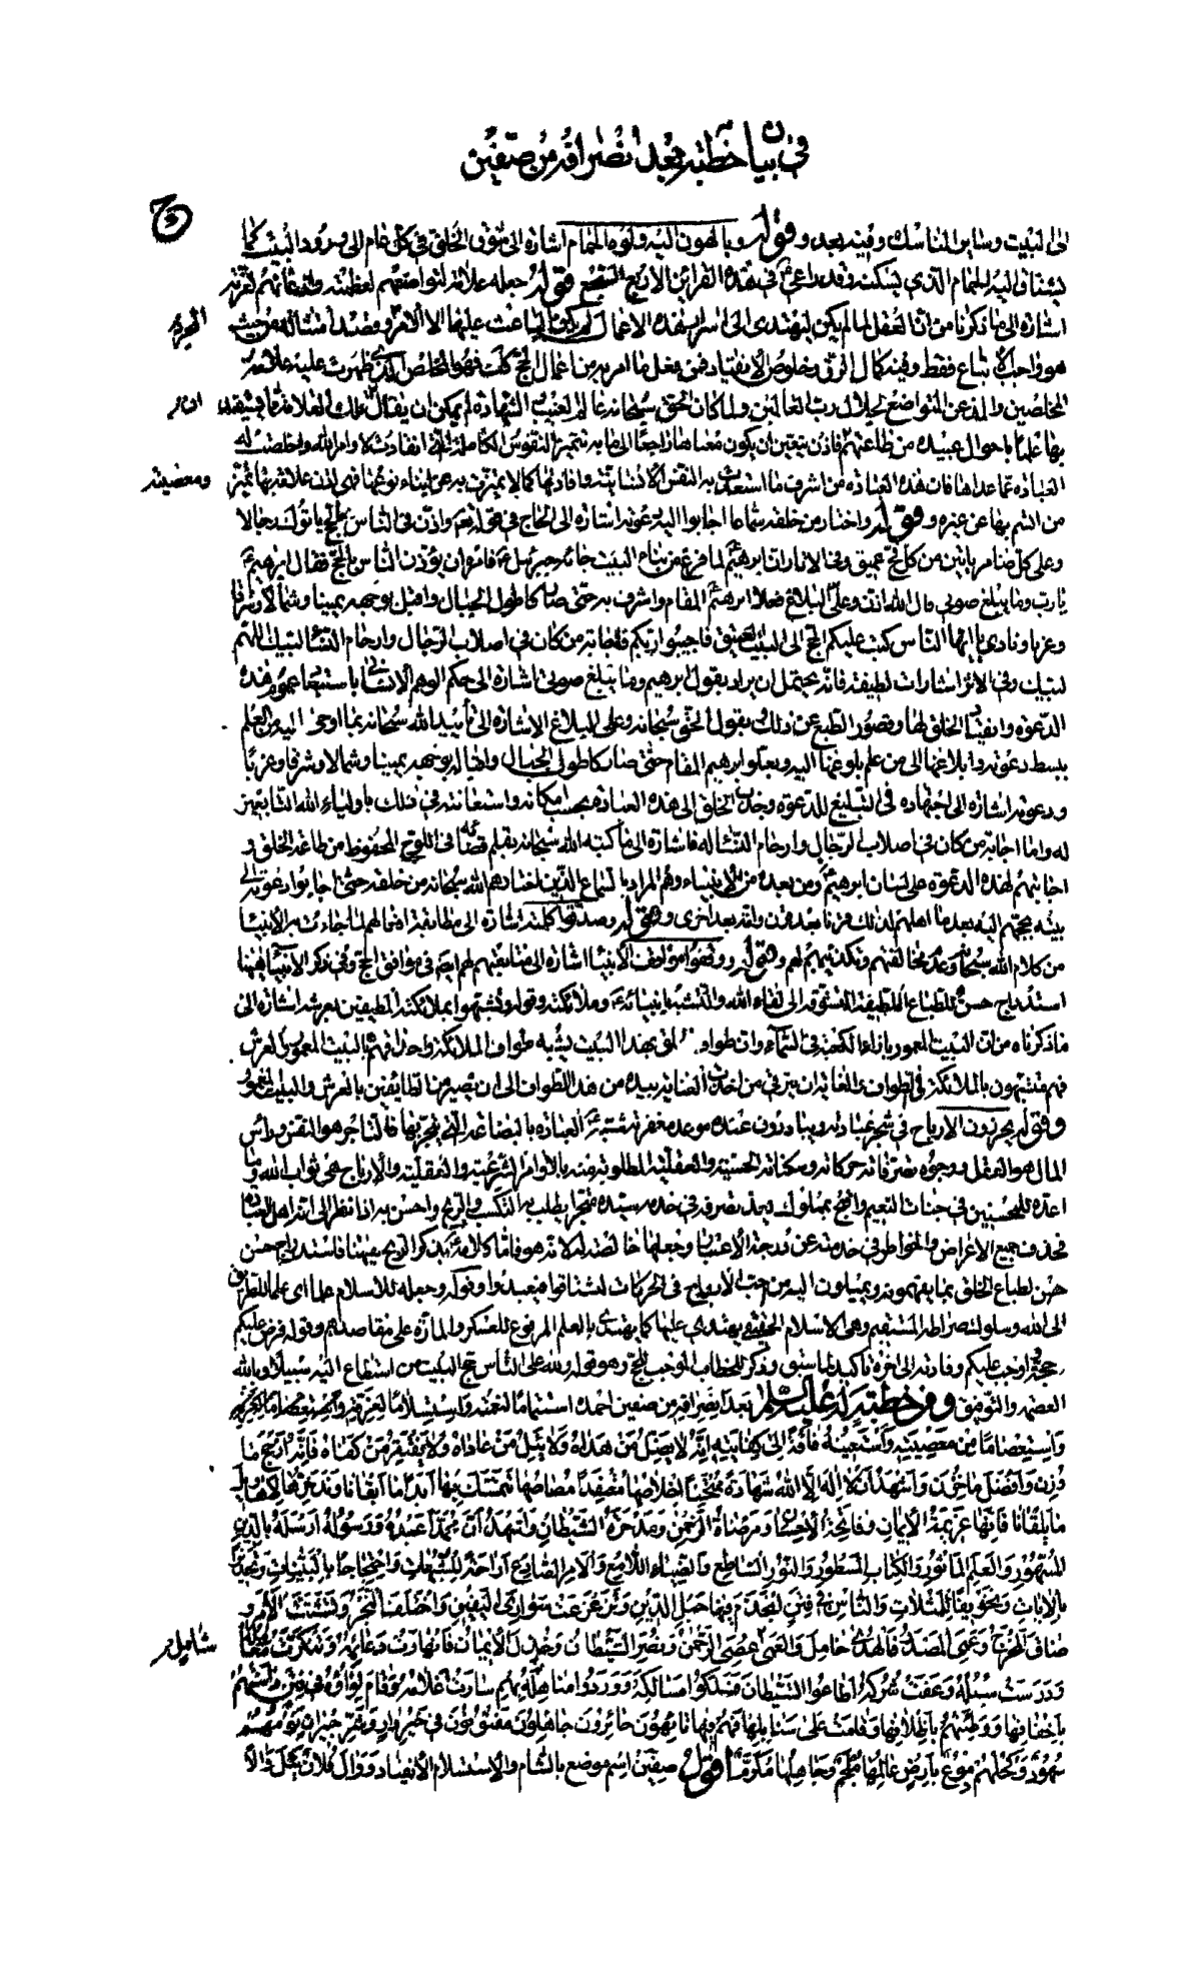 في بيان خطبته بعد انصرافه من صفين
الى البيت وساير المناسك وفيه بعد وقوله ويالهون اليه ولوه الحمام اشارة الى شوق الخلق في كل عام الى ورود البيت كما
يشتاق اليه الحمام الذي يسكنه وقد راعى في هذه القراين الاربع السجع قوله جعله علامة لتواضعهم لعظمته واذعانهم لعزته
اشارة الى ما ذكرنا من ان العقل لما لم يكن ليهتدى الى اسرار هذه الاعمال لم يكن الباعث عليها الا الامر وقصد امتثاله من حيث
هو واجب الاتباع فقط وفيه كمال الرق وخلوص الانقياد فمن فعل ما امر به من اعمال الحج كذلك فهو المخلص الذي ظهرت عليه علامة
المخلصين والمذعن المتواضع لجلال رب العالمين ولما كان الحق سبحانه عالم الغيب والشهادة لم يمكن ان يقال تلك العلامة مما يستفيد
بها علما باحوال عبيده من طاعتهم فاذن يتعين ان يكون معناها راجعا الى ما به تتميز النفوس الكاملة التي انقادت لاوامر الله واخلصت له
العبادة عما عداها فان هذه العبادة من اشرف ما استعدت به النفس الانسانية وافادتها كمالا تميزت به عن ابناء نوعها فهي اذن علامة بها تميز
ومعصيته
من اتسم بها عن غيره وقوله واختار من خلقه سماعا اجابوا اليه دعوته اشارة الى الحاج في قوله تعالى واذن في الناس بالحج ياتوك رجالا
وعلى كل ضامر ياتين من كل فج عميق وفي الاثار ان ابراهيم لما فرغ من بناء البيت جاءه جبرئيل فامره ان يؤذن الناس بالحج فقال ابرهيم
يا رب وما يبلغ صوتي قال الله اذن وعلى البلاغ فعلا ابرهيم المقام واشرف به حتى صار كاطول الجبال واقبل بوجهه يمينا وشمالا وشرقا
وغربا ونادى يا ايها الناس كتب عليكم الحج الى البيت العتيق فاجيبوا ربكم فاجابه من كان في اصلاب الرجال وارحام النساء لبيك اللهم
لبيك وفي الاثر اشارات لطيفة فانه يحتمل ان يراد بقول ابرهيم وما يبلغ صوتي اشارة الى حكم الوهم الانساني باستبعاد عموم هذه
الدعوة وانقياد الخلق لها وقصور الطبع عن ذلك وبقول الحق سبحانه وعلى البلاغ الاشارة الى تأييد الله سبحانه بما اوحى اليه من العلم
ببسط دعوته وابلاغها الى من علم بلوغها اليه وبعلو ابرهيم المقام حتى صار كاطول الجبال واقباله بوجهه يمينا وشمالا وشرقا وغربا
ودعوته اشارة الى اجتهاده في التبليغ للدعوة وجذب الخلق الى هذه العبادة بحسب امكانه واستعانته في ذلك باولياء الله التابعين
له واما اجابة من كان في اصلاب الرجال وارحام النساء له فاشارة الى ما كتبه الله سبحانه بقلم قضائه في اللوح المحفوظ من طاعة الخلق و
اجابتهم لهذه الدعوة على لسان ابرهيم ومن بعده من الانبياء وهم المراد بالسماع الذين اختارهم الله سبحانه من خلقه حتى اجابوا دعوته الى
بيته بحجهم اليه بعد ما اهلهم لذلك قرنا بعد قرن وامة بعد اخرى وقوله وصدقوا كلمته اشارة الى مطابقة افعالهم لما جاءت به الانبياء
من كلام الله سبحانه وعدم مخالفتهم وتكذيبهم لهم وقوله ووقفوا مواقف الانبياء اشارة الى متابعتهم لهم ايضا في مواقف الحج وفي ذكر الانبياء هيهنا
استدراج حسن للطباع اللطيفة المتشوقة الى لقاء الله والتشبه بانبيائه وملائكته وقوله وتشبهوا بملائكته المطيفين بعرشه اشارة الى
ما ذكرناه من ان البيت المعمور بازاء الكعبة في السماء وان طواف الخلق بهذا البيت يشبه طواف الملائكة واحداقهم بالبيت المعمور والعرش
فهم متشبهون بالملائكة في الطواف والغاية ان يترقى من اخذت العناية بيده من هذا الطواف الى ان يصير من الطايفين بالعرش والبيت المعمور
وقوله يحرزون الارباح في متجر عبادته ويتبادرون عنده موعد مغفرته شبه العبادة بالبضاعة التي يتجر بها فالتاجر هو النفس وراس
المال هو العقل ووجوه تصرفاته حركاته وسكناته الحسية والعقلية المطلوبة منه بالاوامر الشرعية والعقلية والارباح هي ثواب الله وما
اعده للمحسنين في جنات النعيم واقبح بمملوك يعد تصرفه في خدمة سيده متجرا يطلب به التكسب والربح واحسن به اذا نظر الى انه اهل العبادة
فحذف جميع الاغراض والخواطر في خدمته عن درجة الاعتبار وجعلها خالصة له لانه هو فاما كلامه بذكر الربح هيهنا فاستدراج حسن
حسن لطباع الخلق بما يفهمونه ويميلون اليه من حب الارباح في الحركات ليشتاقوا فيعبدوا وقوله وجعله للاسلام علما اى علما للطريق
الى الله وسلوك صراطه المستقيم وهى الاسلام الحقيقي يهتدى عليها كما يهتدى بالعلم المرفوع للعسكر والمارة على مقاصدهم وقوله فرض عليكم
حجه واوجب عليكم وفادته الى اخره تاكيد لما سبق وذكر للخطاب الموجب للحج وهو قوله ولله على الناس حج البيت من استطاع اليه سبيلا وبالله
العصمة والتوفيق ومن خطبة له عليه السلام بعد انصرافه من صفين احمده استتماما لنعمته واستسلاما لعزته
واستعصاما من معصيته واستعينه فاقة الى كفايته انه لا يضل من هداه ولا يئل من عاداه ولا يفتقر من كفاه فانه ارجح ما
وزن وافضل ما خزن واشهد ان لا اله الا الله شهادة ممتحنا اخلاصها معتقدا مصاصها نتمسك بها ابدا ما ابقانا وندخرها لاهاويل
ما يلقانا فانها عزيمة الايمان وفاتحة الاحسان ومرضاة الرحمن ومدحرة الشيطان واشهد ان محمدا عبده ورسوله ارسله بالدين
المشهور والعلم الماثور والكتاب المسطور والنور الساطع والضياء اللامع والامر الصادع ازاحة للشبهات واحتجاجا بالبينات وتحذيرا
بالايات وتخويفا للمثلات والناس في فتن انجذم فيها حبل الدين وتزعزعت سواري اليقين واختلف النجر وتشتت الامر و
ضاق المخرج وعمي المصدر فالهدى خامل والعمى شامل عصي الرحمن ونصر الشيطان وخذل الايمان فانهارت دعائمه وتنكرت معالمه
شامل
ودرست سبله وعفت شركه اطاعوا الشيطان فسلكوا مسالكه ووردوا مناهله بهم سارت اعلامه وقام لواؤه في فتن داستهم
باخفافها ووطئتهم باظلافها وقامت على سنابكها فهم فيها تائهون حائرون جاهلون مفتونون في خير دار وشر جيران نومهم
سهود وكحلهم دموع بارض عالمها ملجم وجاهلها مكرم اقول صفين اسم موضع بالشام والاستسلام الانقياد ووال فلان يئل والا